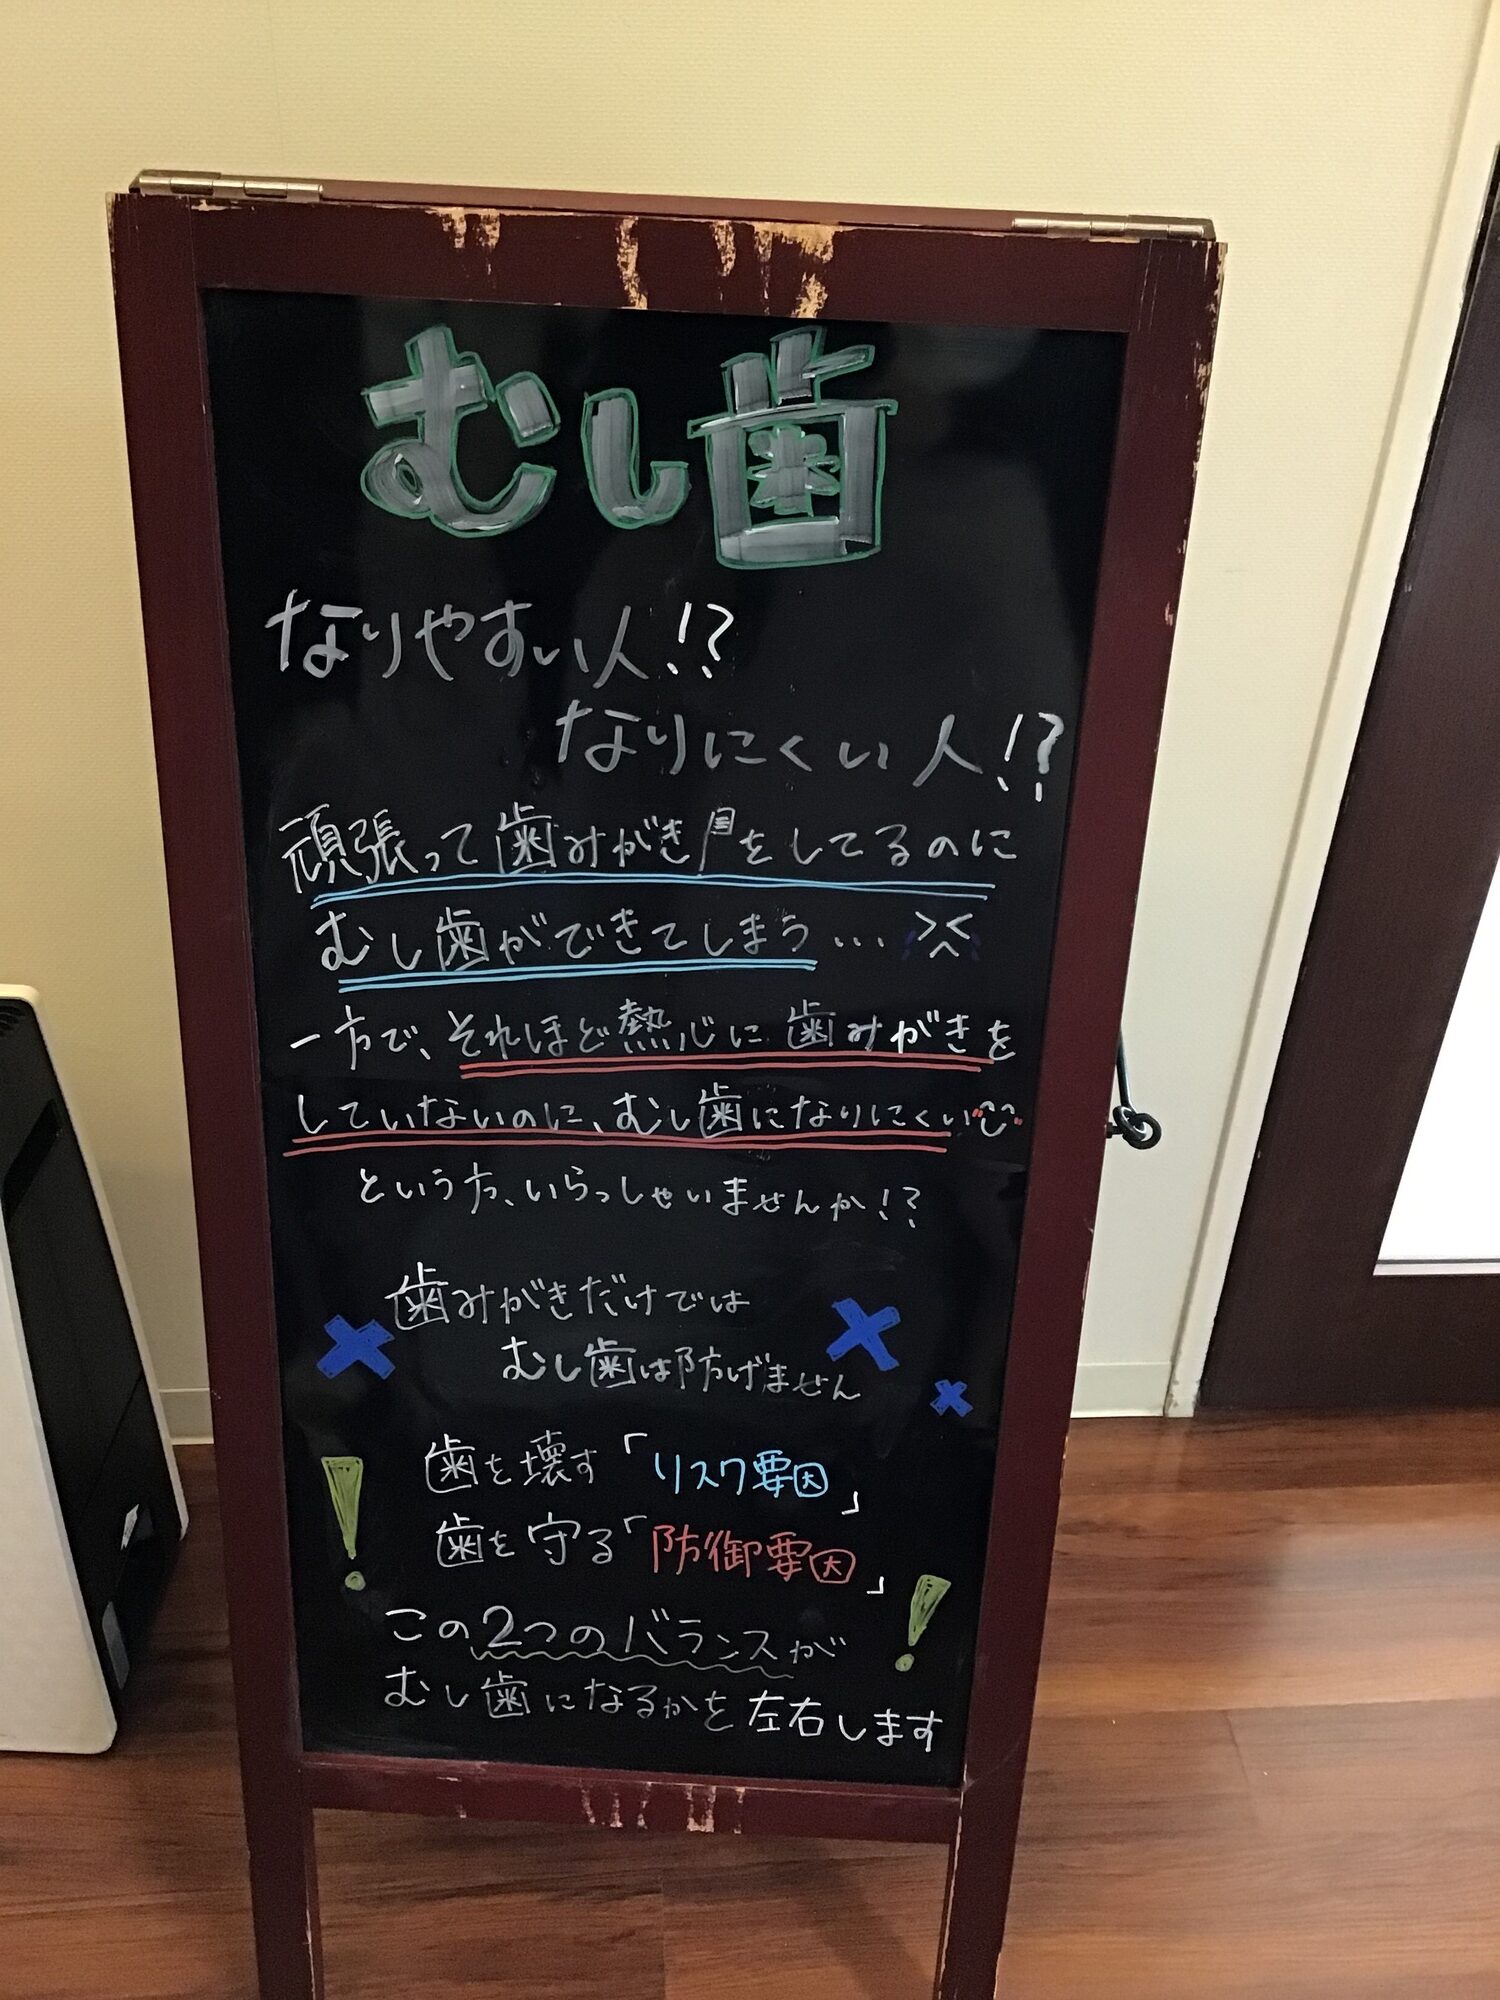 むし歯
なりやすい人!?
なりにくい人!?
頑張って歯みがきをしてるのに
むし歯ができてしまう…
一方で、それほど熱心に歯みがきを
していないのに、むし歯になりにくい
という方、いらっしゃいませんか!?
歯みがきだけでは
むし歯は防げません
歯を壊す「リスク要因」
歯を守る「防御要因」
この2つのバランスが
むし歯になるかを左右します